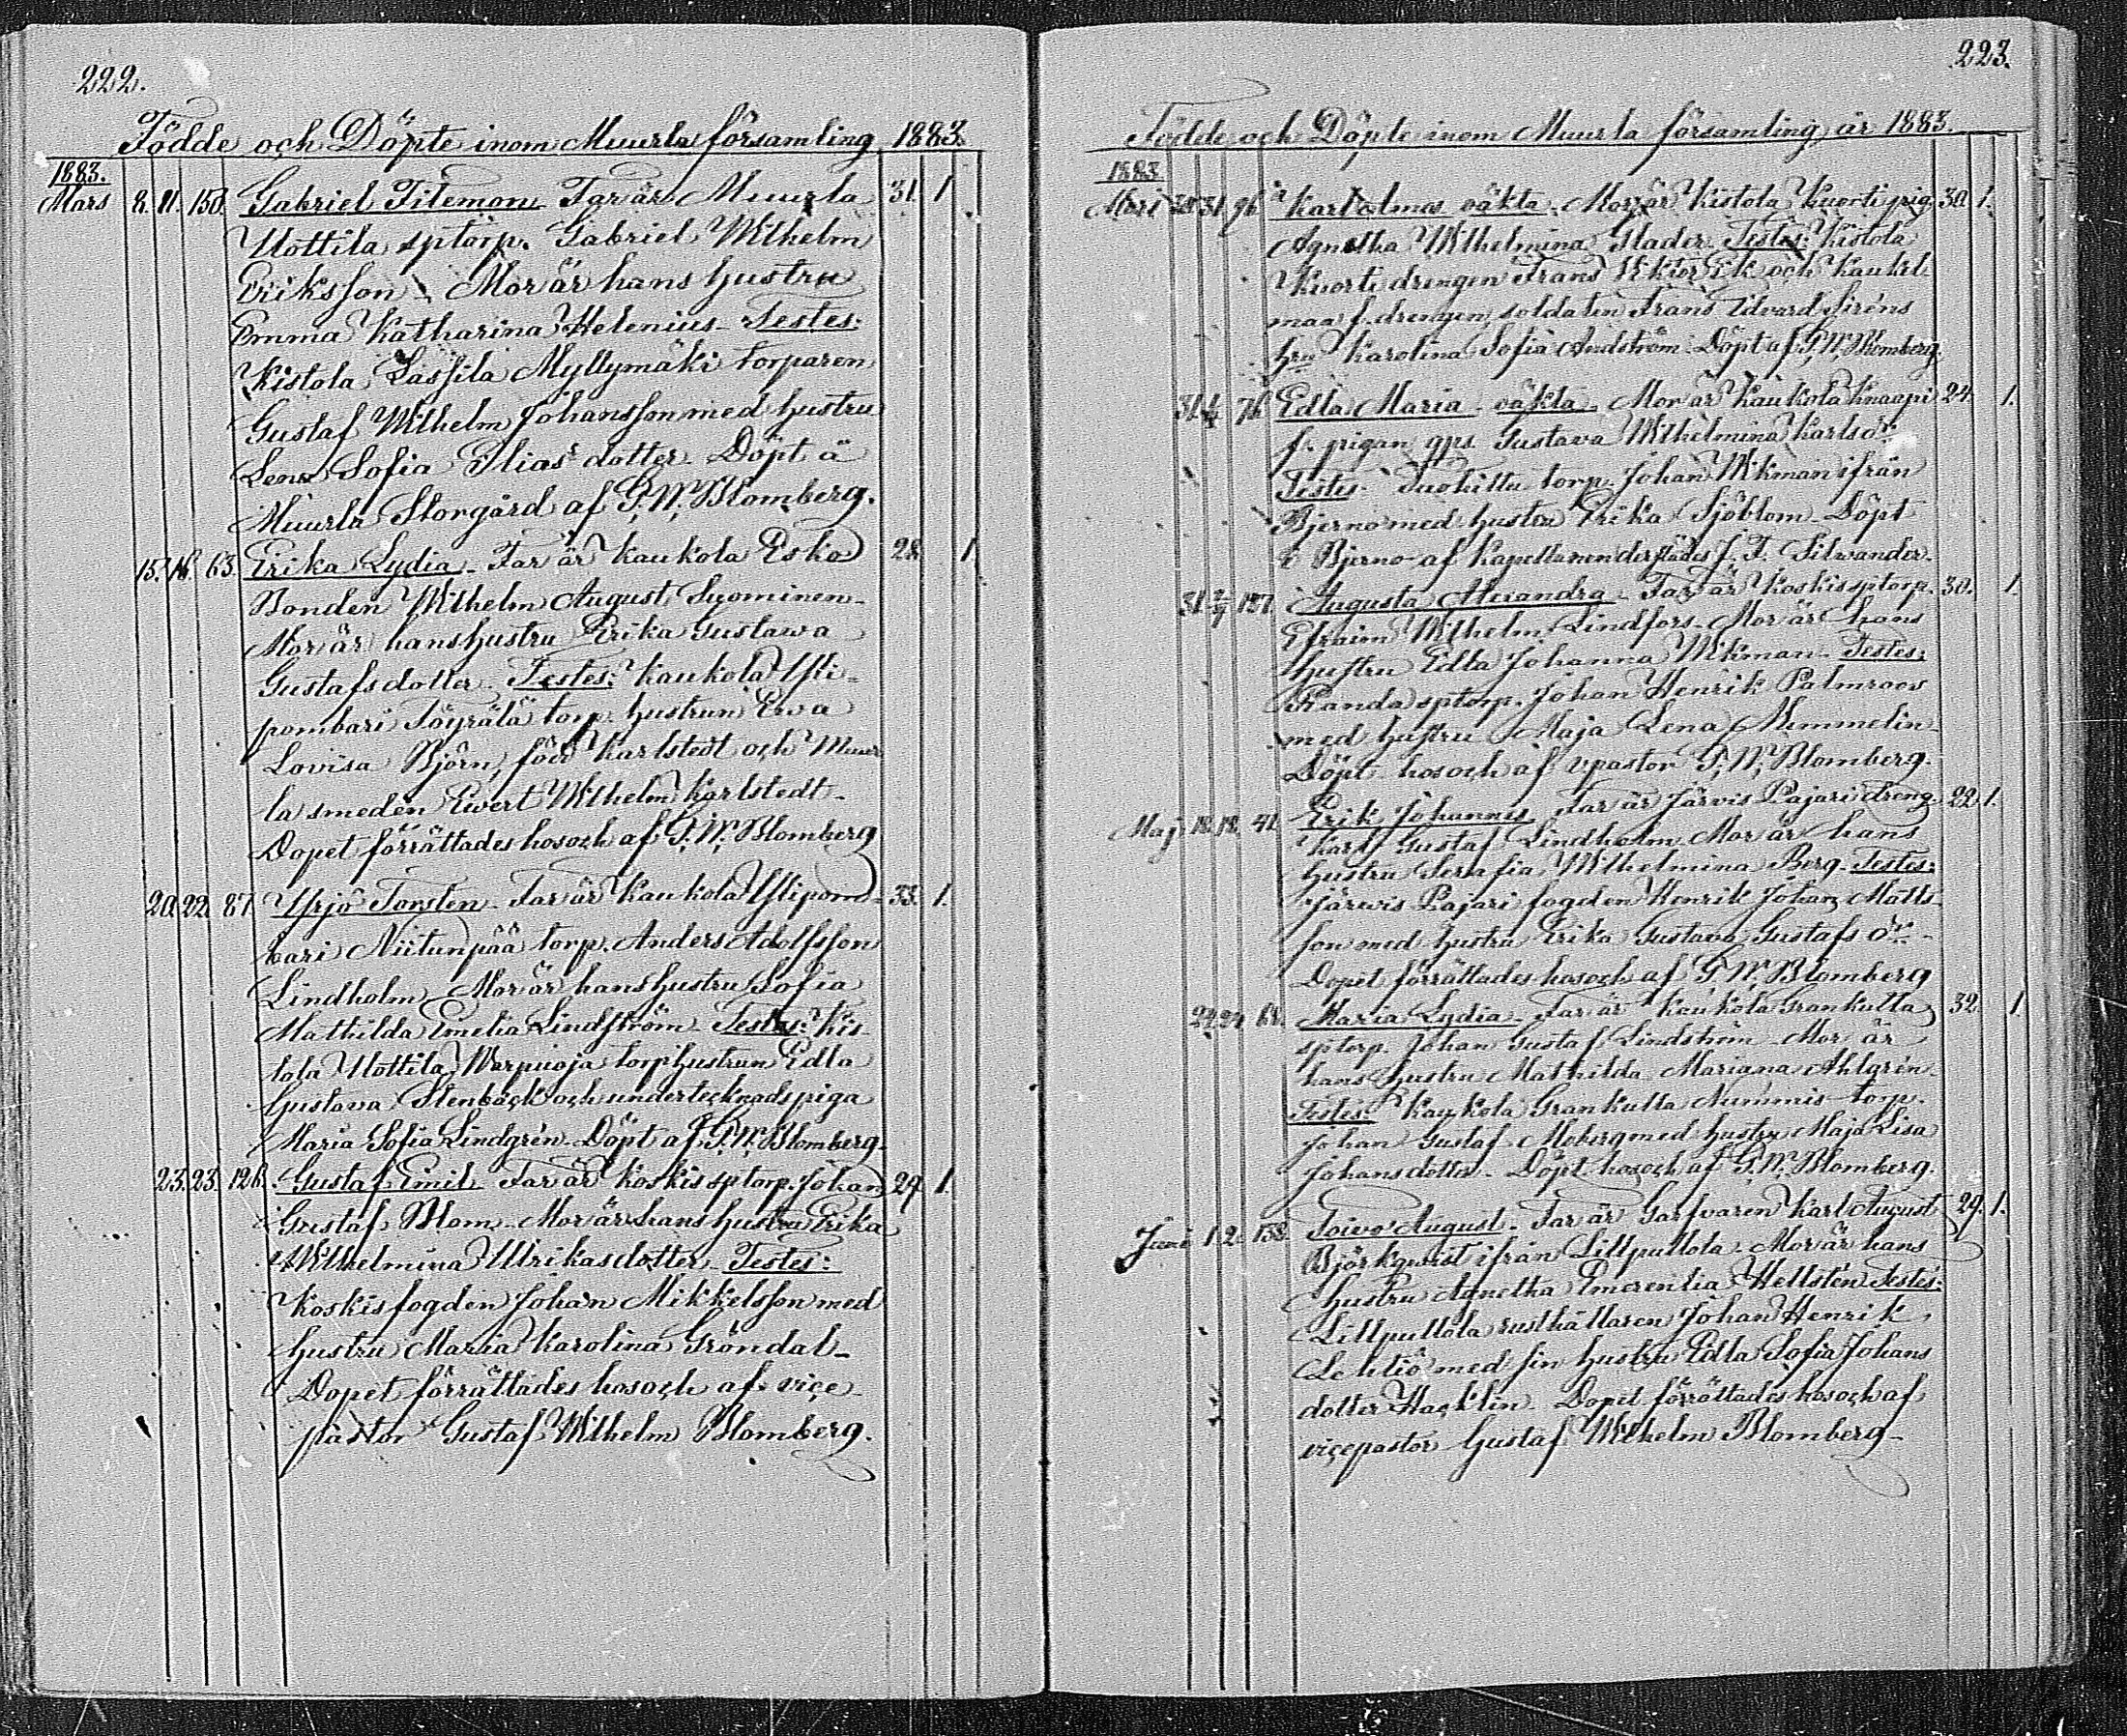 222.
Födde och Döpte inom Muurla församling 1883.
1883.
Mars 8. 11. 150. Gabriel Filemon. Far är Muurla 31. 1
Uottila sptorp. Gabriel Wilhelm
Eriksson. Mor är hans hustru
Emma Katharina Helenius. Testes:
Kistola Lassila Myllymäki torparen
Gustaf Wilhelm Johansson med hustru
Lena Sofia Eliasdotter. Döpt å
Muurla Storgård af G. W. Blomberg.
15. 16. 63. Erika Lydia. Far är Kaukola Esko 28. 1
Bonden Wilhelm August Suominen.
Mor är hans hustru Erika Gustawa
Gustafsdotter. Testes: Kaukola Yli-
pombari Töyrälä torp. hustrun Ewa
Lovisa Björn, född Karlstedt och Muur
la smeden Ewert Wilhelm Karlstedt.
Dopet förrättades hos och af G. W. Blomberg
20. 22. 87. Yrjö Torsten. Far är Kaukola Ylipom- 33. 1.
bari Niitunpää torp. Anders Adolfsson
Lindholm. Mor är hans hustru Sofia
Mathilda Emelia Lindström. Testes: Kis-
tola Uottila Warpuoja torphustrun Edla
Gustava Stenbäck och undertecknads piga
Maria Sofia Lindgrén. Döpt af G. W. Blomberg.
23. 23. 126. Gustaf Emil. Far är Koskis sptorp. Johan 29. 1.
Gustaf Blom. Mor är hans hustru Erika
Wilhelmina Ulrikasdotter. Testes:
Koskis fogden Johan Mikkelsson med
hustru Maria Karolina Gröndal.
Dopet förrättades hos och af vice
pastor Gustaf Wilhelm Blomberg.
223.
Födde och Döpte inom Muurla församling år 1883.
1883.
31. 96. Karl oäkta. Mor är Kistola Kuorti pig. 30. 1.
Agnetha Wilhelmina Glader. Testes: Kistola
Kuorti drengen Frans Wiktor Ek och Kaukl
maa f. drengen, soldaten Frans Edvard Siréns
hru Karolina Sofia Lindström. Döpt af G. W. Blomberg.
31. 76 Edla Maria oäkta. Mor är Kaukola Knaapi 24. 1.
f. pigan Gustava Wilhelmina Karlsdr.
Testes. torp. Johan Wikman ifrån
Bjerno med hustru Erika Sjöblom. Döpt
i Bjerno af Kapellanen derstädes J. F. Silwander.
31. 137. Augusta Alexandra. Far är Koskis sptorp. 30. 1.
Efraim Wilhelm Lindfors. Mor är hans
hustru Edla Johanna Wikman. Testes:
Randa sptorp. Johan Henrik Palmroos
med hustru Maja Lena Nimmelin.
Döpt hos och af vpastor G. W. Blomberg.
Maj 18. 18. 41. Erik Johannes. Far är Järvis Pajari dreng. 22. 1.
Karl Gustaf Lindholm. Mor är hans
hustru Serafia Wilhelmina Berg. Testes:
Järwis Pajari fogden Henrik Johan Matts-
son med hustru Erika Gustava Gustafs dr.
Dopet förrättades hos och af G. W. Blomberg
24. 24. 68. Maria Lydia. Far är Kaukola Grankulla 32. 1.
sptorp. Johan Gustaf Lindström. Mor är
hans hustru Mathilda Mariana Ahlgrén.
Testes: Kaukola Grankulla Nummis torp.
Johan Gustaf Moberg med hustru Maja Lisa
Johansdotter. Döpt hos och af G. W. Blomberg.
Juni 1. 2. 158. Toivo August. Far är Garfvaren Karl August 29. 1.
Björkqwist ifrån Lillpullola. Mor är hans
hustru Agnetha Emerentia Hellstén. Testes:
Lillpullola rusthållaren Johan Henrik
Lehtiö med sin hustru Edla Sofia Johans
dotter Hacklin. Dopet förrättades hos och af
vicepastor Gustaf Wilhelm Blomberg.